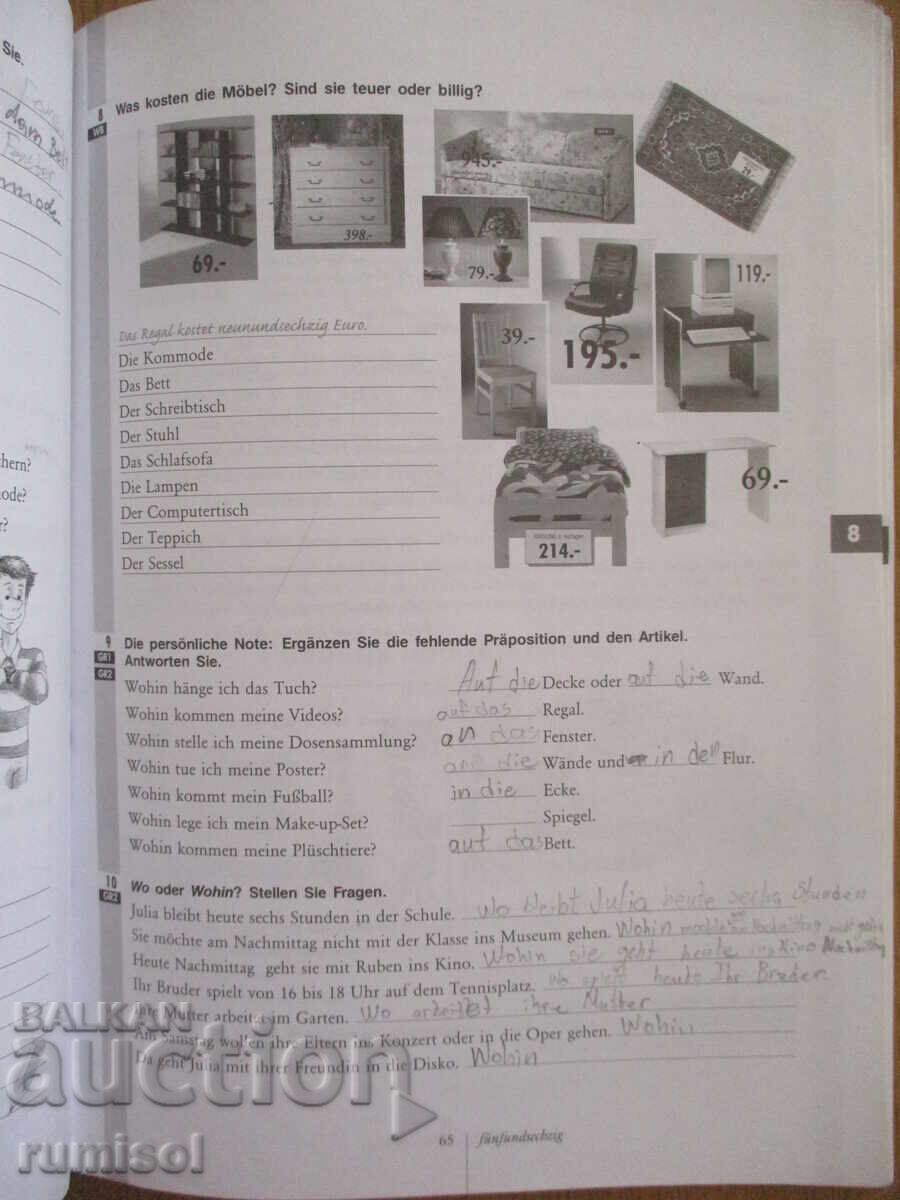 Sie.
dem Bett
Fenster
mmode
chern?
ode?
r?
8
WB
Was kosten die Möbel? Sind sie teuer oder billig?
69.-
398.-
945.-
79.-
39.-
195.-
119.-
214.-
69.-
Das Regal kostet neunundsechzig Euro.
Die Kommode
Das Bett
Der Schreibtisch
Der Stuhl
Das Schlafsofa
Die Lampen
Der Computertisch
Der Teppich
Der Sessel
8
9
GR1
GR2
Die persönliche Note: Ergänzen Sie die fehlende Präposition und den Artikel.
Antworten Sie.
Wohin hänge ich das Tuch? Auf die Decke oder auf die Wand.
Wohin kommen meine Videos? auf das Regal.
Wohin stelle ich meine Dosensammlung? an das Fenster.
Wohin tue ich meine Poster? an die Wände und in den Flur.
Wohin kommt mein Fußball? in die Ecke.
Wohin lege ich mein Make-up-Set? Spiegel.
Wohin kommen meine Plüschtiere? auf das Bett.
10
GR2
Wo oder Wohin? Stellen Sie Fragen.
Julia bleibt heute sechs Stunden in der Schule. Wo bleibt Julia heute sechs Stunden
Sie möchte am Nachmittag nicht mit der Klasse ins Museum gehen. Wohin
Heute Nachmittag geht sie mit Ruben ins Kino. Wohin sie geht heute ins Kino
Ihr Bruder spielt von 16 bis 18 Uhr auf dem Tennisplatz. Wo spielt heute Ihr Bruder
Ihre Mutter arbeitet im Garten. Wo arbeitet ihre Mutter
Am Samstag wollen ihre Eltern ins Konzert oder in die Oper gehen. Wohin
Da geht Julia mit ihrer Freundin in die Disko. Wohin
65 fünfundsechzig
BALKAN
auction
rumisol